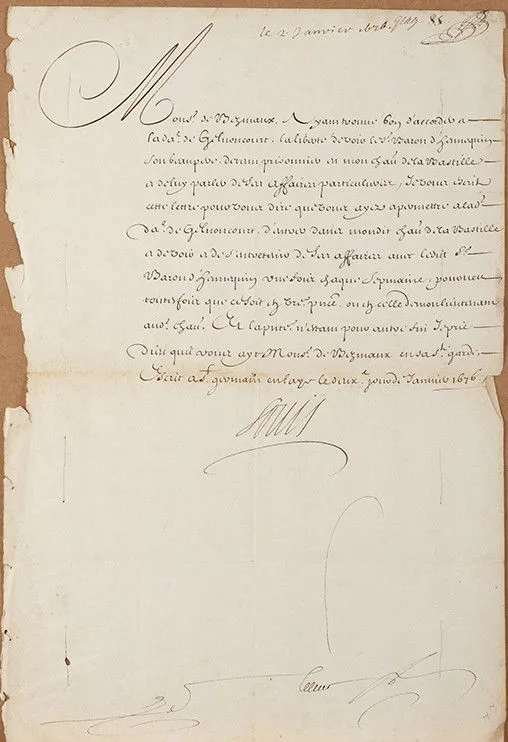 le 2 Janvier 1676.
Mons.r de Bezmaux, Ayant trouvé bon d'accorder a
la da.e de Gelnoncourt, la liberté de voir le s.r Baron d'hennequin
son beaupere, detenu prisonnier en mon chau de la Bastille
et de luy parler de ses affaires particulieres, Je vous escrit
cette lettre pour vous dire que vous ayez a permettre a lad.
da.e de Gelnoncourt, d'entrer dans mondit chau de la Bastille
et de voir et de s'entretenir de ses affaires avec ledit S.r
Baron d'hennequin une fois chaque sepmaine, pourveu
toutesfois que ce soit en v.re pnce. ou en celle de mon lieutenant
aud. chau. Et la pnte. n'estant pour autre fin Je prie
Dieu qu'il vous ayt Mons.r de Bezmaux en sa s.te garde.
Escrit a S.t germain en laye le deux.e jour de Janvier 1676
Louis